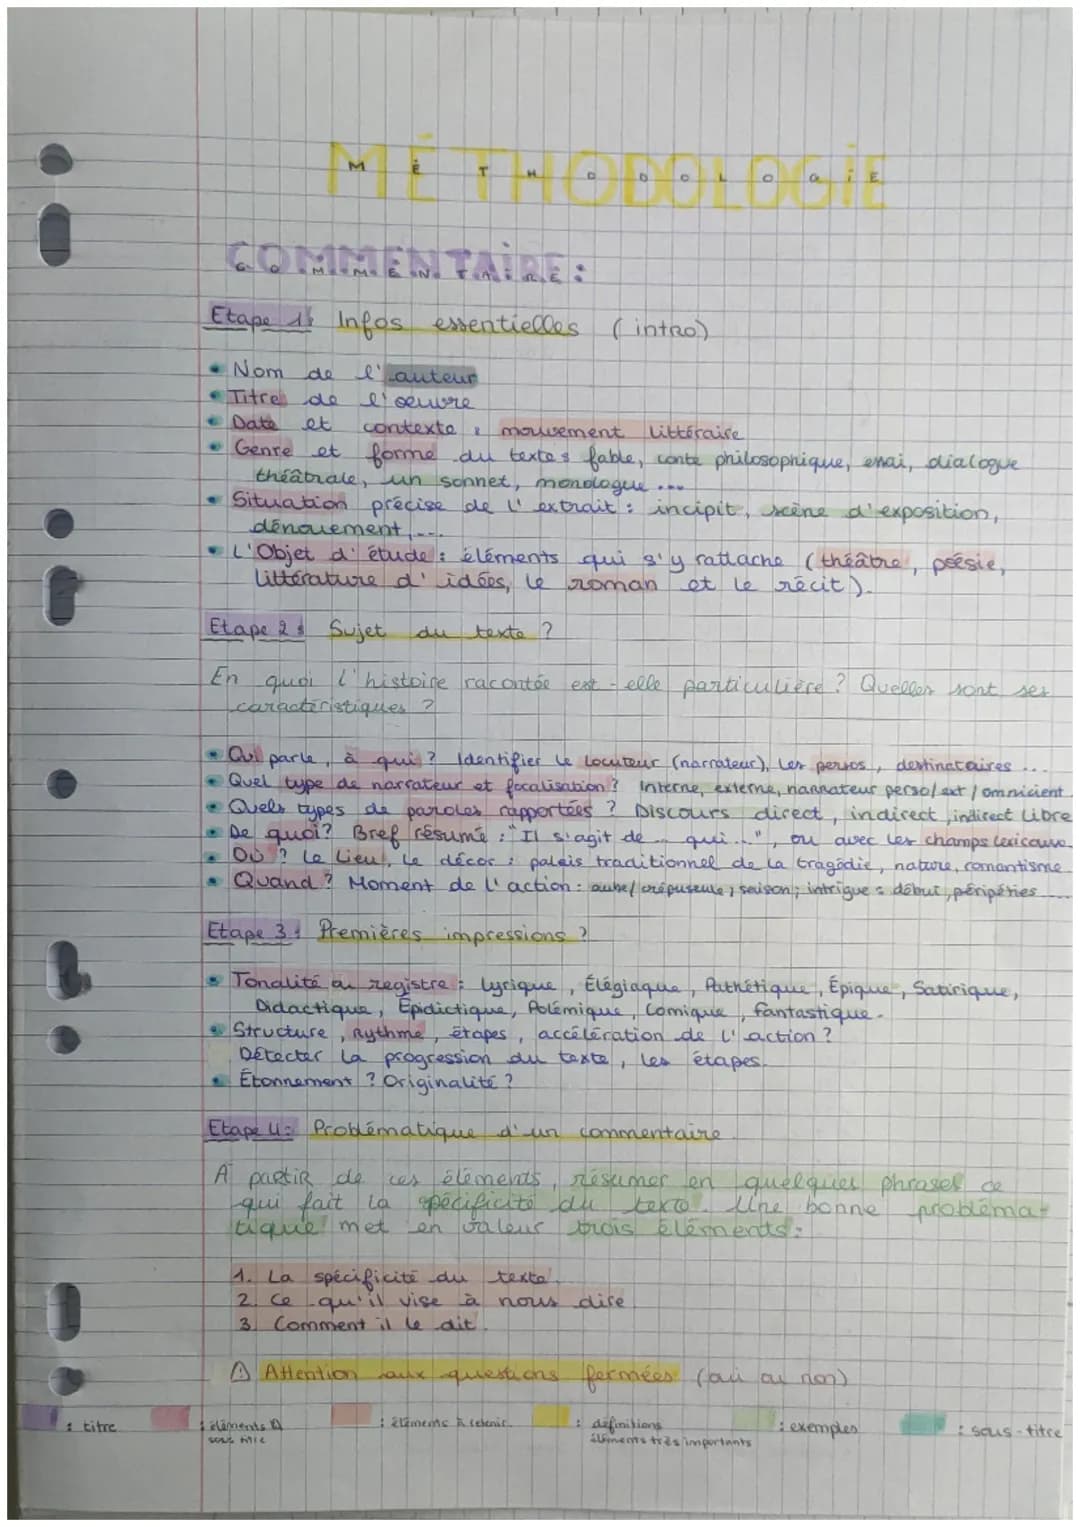 MÉTHODOLOGIE
COMMENTAIRE :
Etape 1: Infos essentielles (intro)
• Nom de l'auteur
• Titre de l'oeuvre
• Date et contexte, mouvement littéraire
• Genre et forme du texte : fable, conte philosophique, essai, dialogue
théâtrale, un sonnet, monologue ...
• Situation précise de l'extrait : incipit, scène d'exposition,
dénouement,...
• L'Objet d'étude : éléments qui s'y rattache (théâtre, poésie,
littérature d'idées, le roman et le récit).
Etape 2: Sujet du texte ?
En quoi l'histoire racontée est-elle particulière ? Quelles sont ses
caractéristiques ?
• Qui parle, à qui ? Identifier le locuteur (narrateur), les persos, destinataires ...
• Quel type de narrateur et focalisation ? Interne, externe, narrateur perso/ext/omnicient
• Quels types de paroles rapportées ? Discours direct, indirect, indirect libre
• De quoi ? Bref résumé : "Il s'agit de ... qui ...", ou avec les champs lexicaux.
• Où ? Le lieu, le décor : palais traditionnel de la tragédie, nature, romantisme
• Quand ? Moment de l'action : aube/crépuscule ; saison ; intrigue : début, péripéties ...
Etape 3: Premières impressions ?
• Tonalité ou registre : Lyrique, Élégiaque, Pathétique, Épique, Satirique,
Didactique, Épidictique, Polémique, Comique, fantastique.
• Structure, Rythme, étapes, accélération de l'action ?
Détecter la progression du texte, les étapes.
• Étonnement ? Originalité ?
Etape 4: Problématique d'un commentaire
A partir de ces éléments, résumer en quelques phrases ce
qui fait la spécificité du texte. Une bonne probléma-
tique met en valeur trois éléments :
1. La spécificité du texte.
2. Ce qu'il vise à nous dire
3. Comment il le dit.
⚠ Attention aux questions fermées (oui ou non)
: titre : éléments : éléments à retenir : définitions : exemples : sous-titre
sous titre éléments très importants